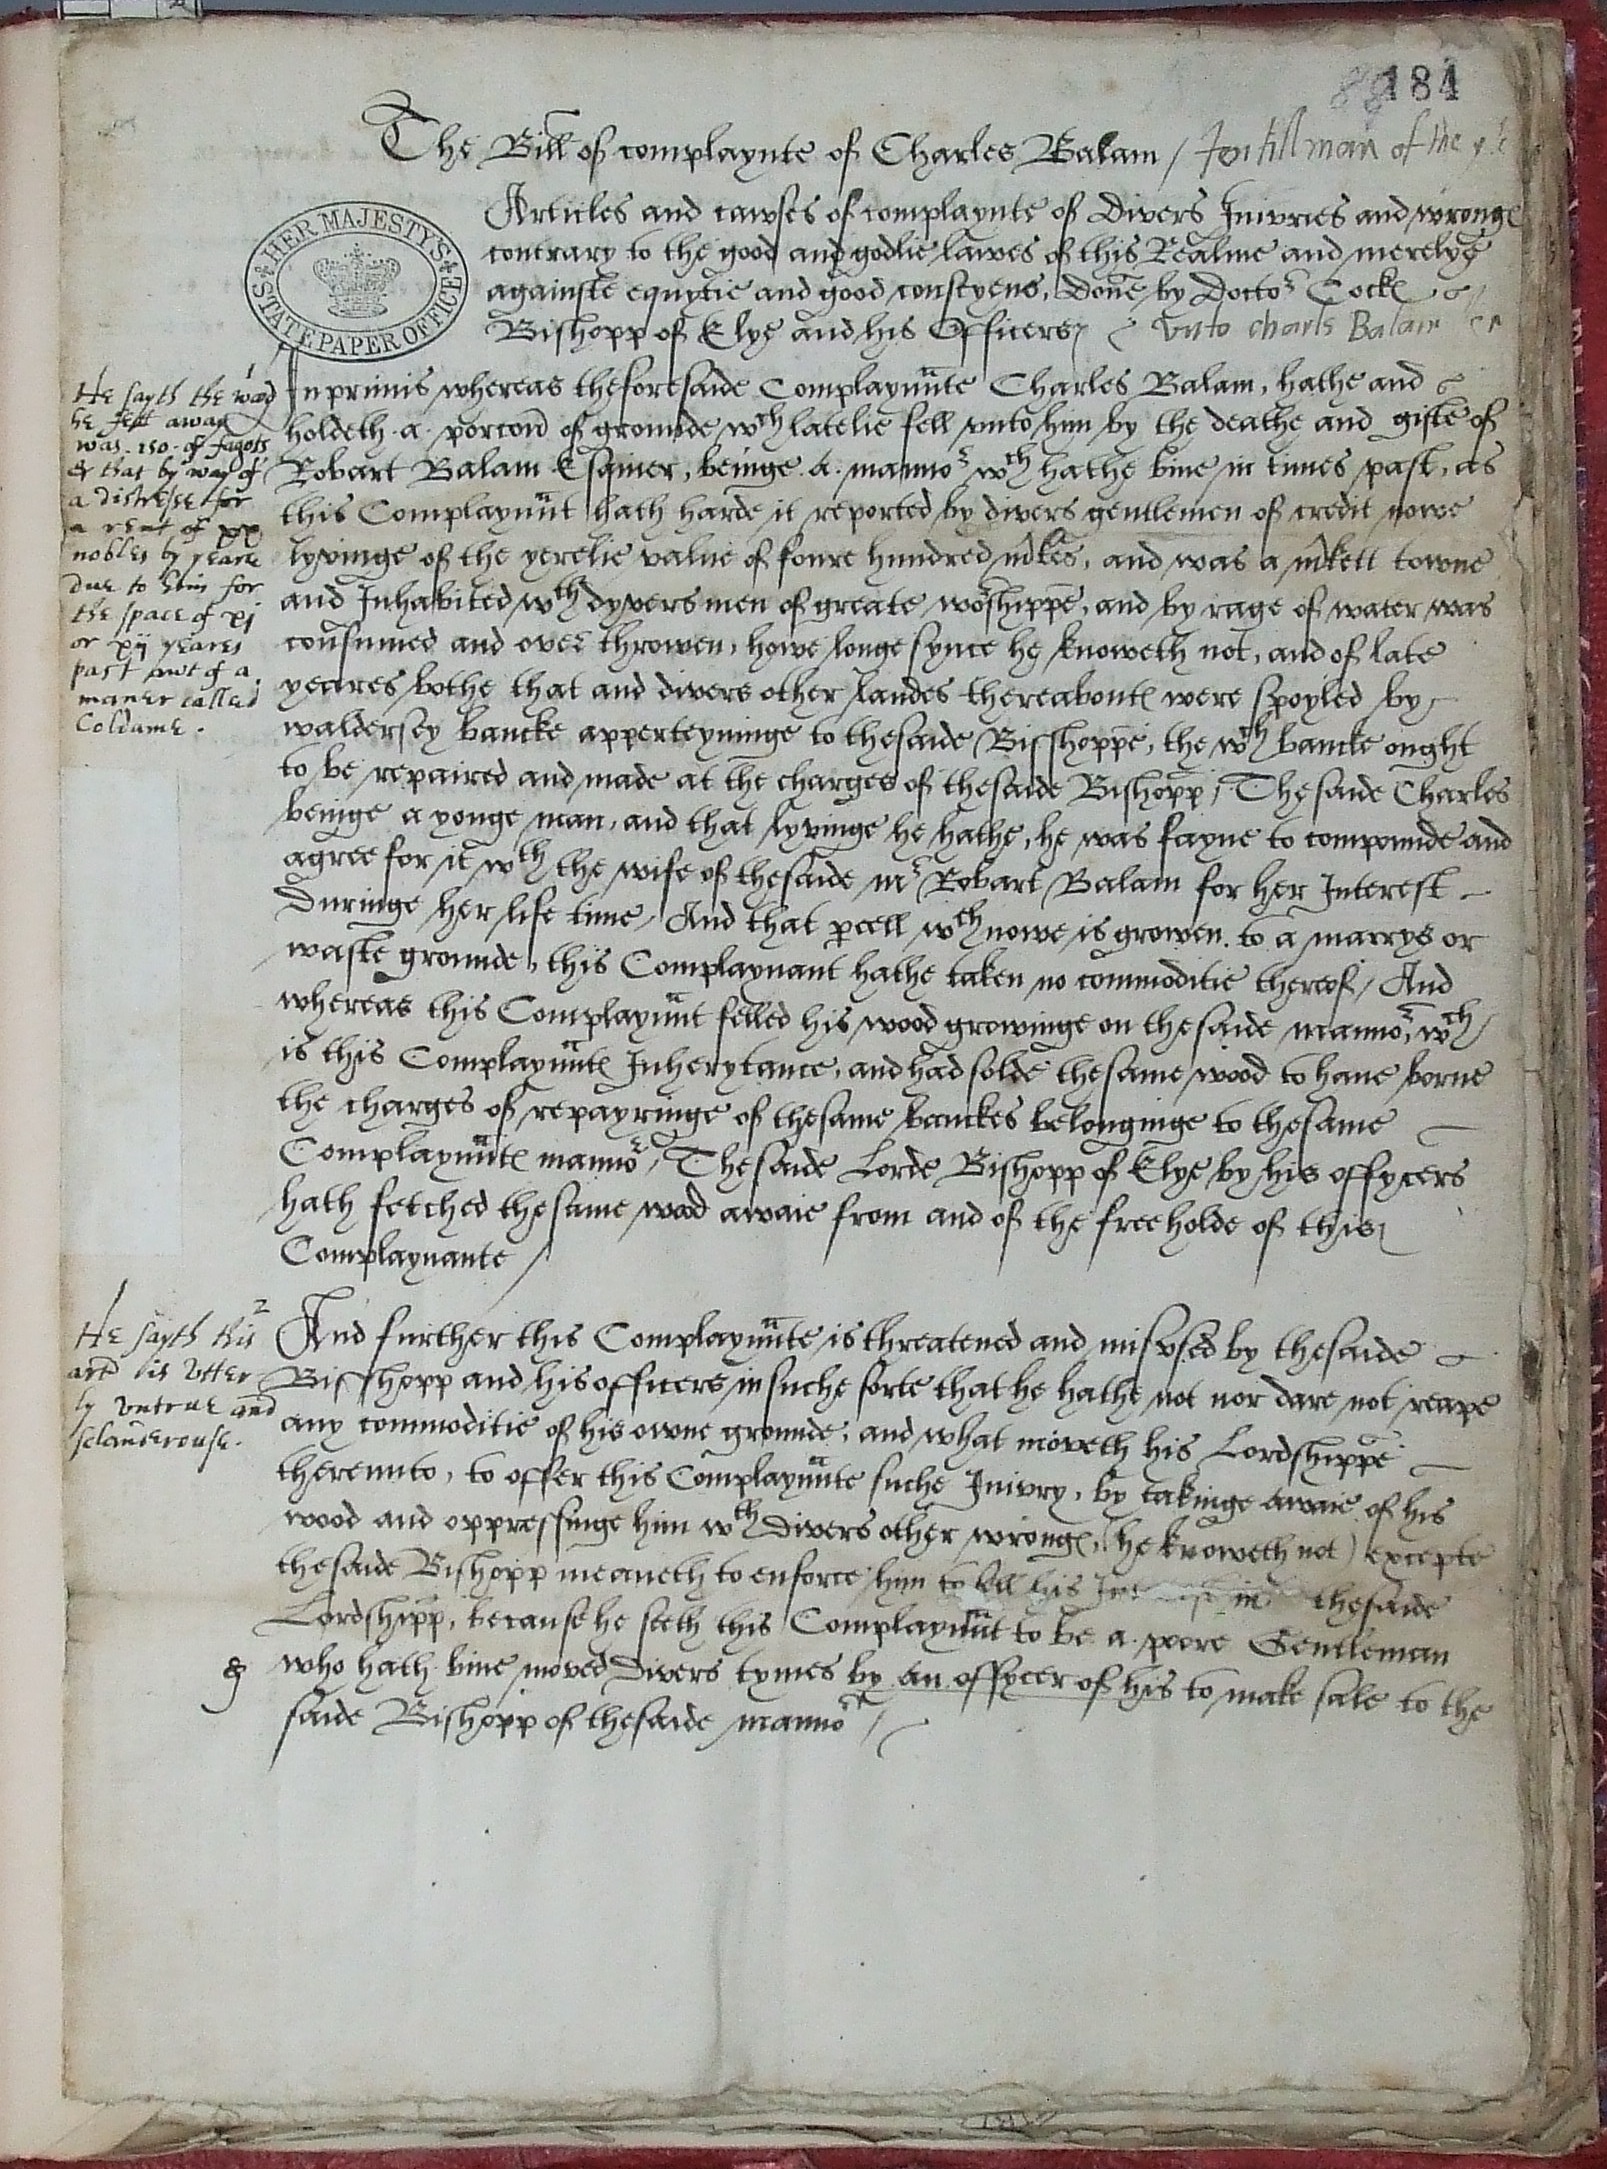 88 184
The Bill of complaynte of Charles Balam / Jentillman of the
Articles and cawses of complaynte of Divers Iniuries and wronges
contrary to the good and godlie lawes of this Realme and merelye
againste equytie and good conscyens, Done by Doctor Cockes
Bishopp of Elye and his Officers / vnto Charls Balam
HER MAJESTY'S STATE PAPER OFFICE
1
He sayth the wod
he fett away
was .150. of fagots
& that by way of
a distresse for
a rent of xx
nobles by yeare
due to him for
the space of xj
or xij yeares
past owt of a
maner called
Coldame .
Inprimis whereas thesoresaide Complaynnte Charles Balam, hathe and
holdeth a porcon of grounde wch latelie fell unto him by the deathe and gifte of
Robart Balam Esquier, beinge a mannor wch hathe bine in times past, as
this Complaynnt hath harde it reported by divers gentlemen of credit nowe
lyvinge of the yerelie value of foure hundred mkes, and was a mkett towne
and Inhabited wth dyvers men of greate worshippe, and by rage of water was
consumed and over throwen, howe longe synce he knoweth not, and of late
yeares bothe that and divers other landes thereaboutes were spoyled by
waldersey bancke apperteyninge to thesaide Bisshoppe, the wch bancke ought
to be repaired and made at the charges of thesaide Bishopp / The saide Charles
beinge a yonge man, and that lyvinge he hathe, he was fayne to compounde and
agree for it wth the wife of thesaide mr Robart Balam for her Interest
Duringe her life time / And that pcell wch nowe is growen to a marrys or
waste grounde, this Complaynant hathe taken no commoditie thereof / And
whereas this Complaynnt felled his wood growinge on thesaide mannor, wch
is this Complaynntes Inherytance, and had solde thesame wood to haue borne
the charges of repayringe of thesame banckes belonginge to thesame
Complaynntes mannor / The saide Lorde Bishopp of Elye by his offycers
hath fetched thesame wood awaie from and of the freeholde of this
Complaynante /
2
He sayth this
art is vtter
ly vntrue and
sclanderouse.
And further this Complaynnte is threatened and misvsed by thesaide
Bisshopp and his officers in suche sorte that he hathe not nor dare not reape
any commoditie of his owne grounde, and what moveth his Lordshippe
thereunto, to offer this Complaynnte suche Iniury, by takinge awaie of his
wood and oppressinge him wth Divers other wronges, (he knoweth not) excepte
thesaide Bishopp meaneth to enforce him to sell his in thesaide
Lordshipp, because he seeth this Complaynnt to be a poore Gentleman
who hath bine moved Divers tymes by an offycer of his to make sale to the
saide Bishopp of thesaide mannor /